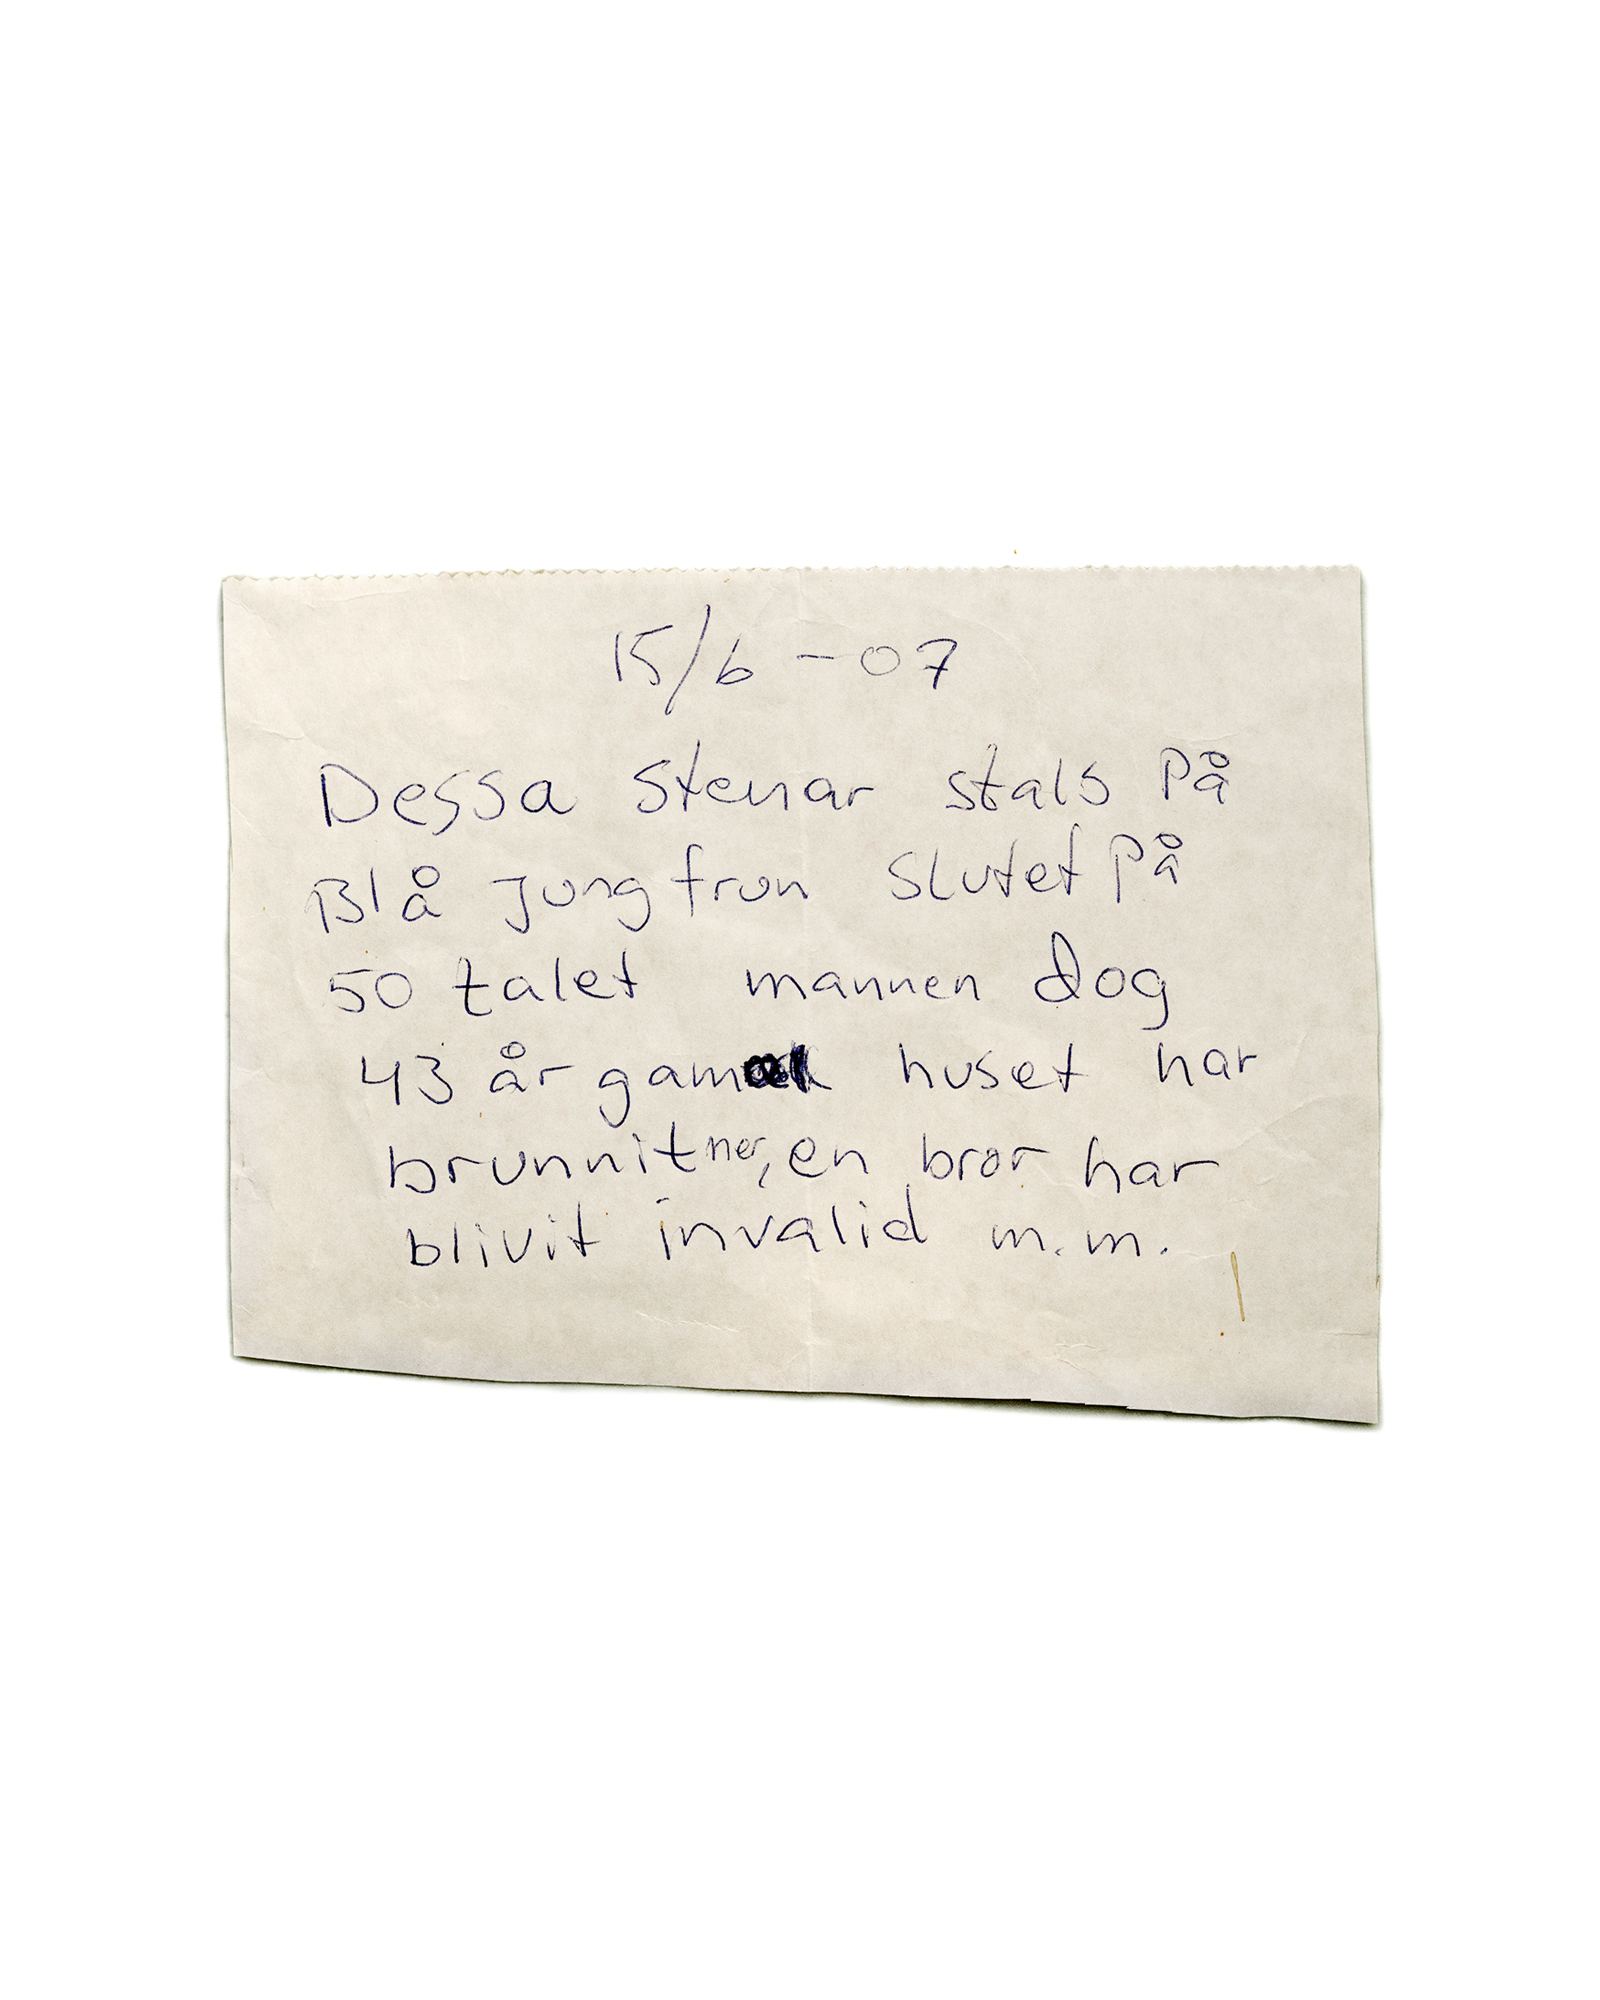 15/6 - 07
Dessa stenar stals På
Blå jungfrun Slutet På
50 talet mannen dog
43 år gammal huset har
brunnit ner, en bror har
blivit invalid m.m.